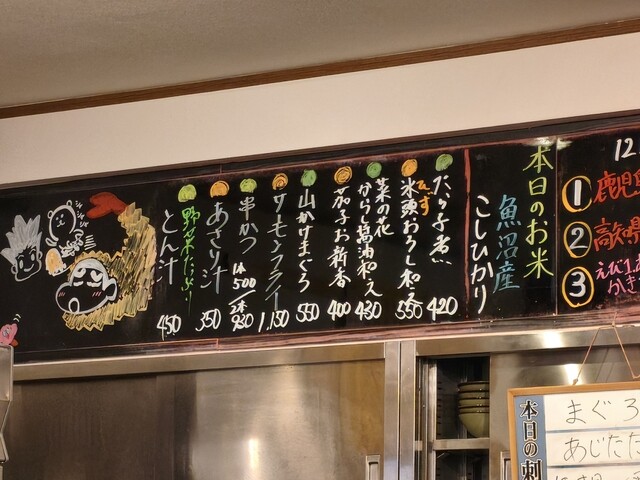 12
① 鹿児
② 高知県
③ えび
かき
本日のお米
魚沼産
こしひかり
たら子煮 420
氷頭おろし和え 550
ひず
菜の花
からし醤油和え 430
茄子お新香 400
山かけまぐろ 550
サーモンフライ 1,150
串かつ 1本500/2本930
あさり汁 350
野菜たっぷり
とん汁 450
本日の刺
まぐろ
あじたた